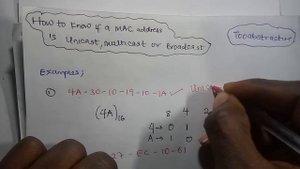 How to Know if a MAC address
is Unicast, Multicast or Broadcast
Examples;
4A - 30 - 10 - 19 - 10 - 1A
(4A)16
8 4 2
4 → 0 1
A → 1 0
27 - EC - 10 - 61